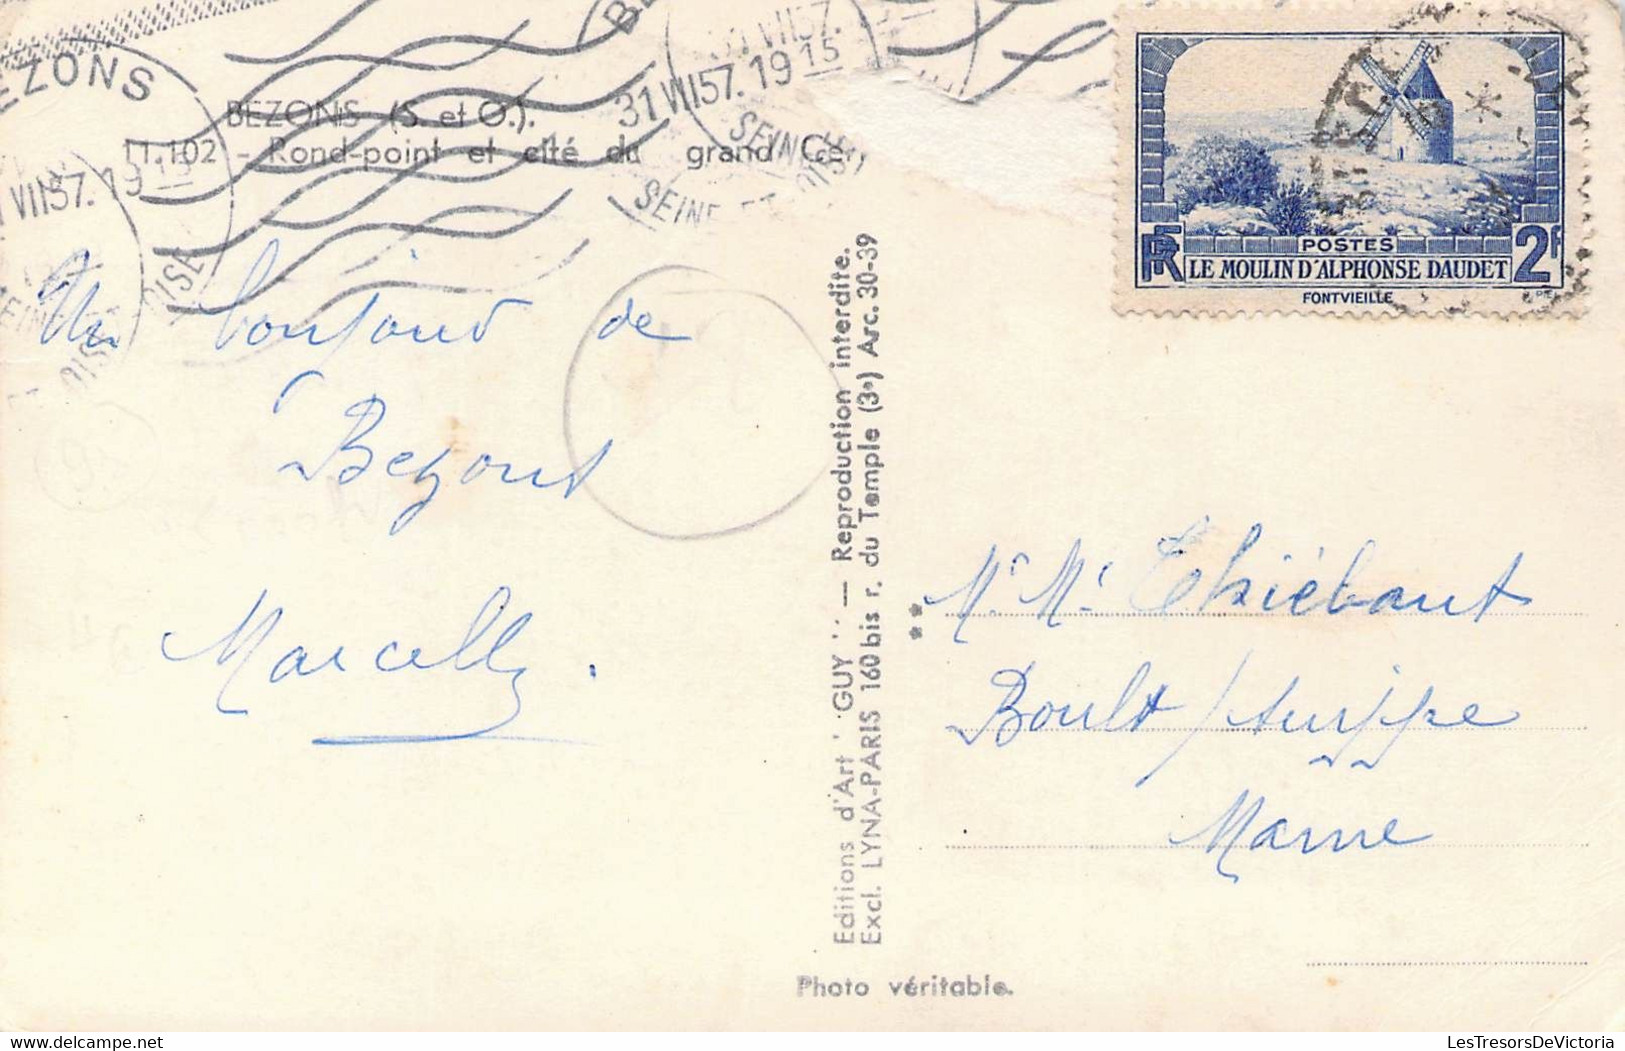 BEZONS
31 VII 57. 19 15
SEINE ET OISE
BEZONS (S. et O.).
11.102 - Rond-point et cité du grand Ce
Un bonjour de
Bezons
Marcelle.
Editions d'Art ''GUY'' — Reproduction interdite.
Excl. LYNA-PARIS 160 bis r. du Temple (3e) Arc. 30-39
Photo véritable.
POSTES
RF LE MOULIN D'ALPHONSE DAUDET 2F
FONTVIEILLE
Mr. Me Thiébaut
Boult / Suippe
Marne
LesTresorsDeVictoria.com